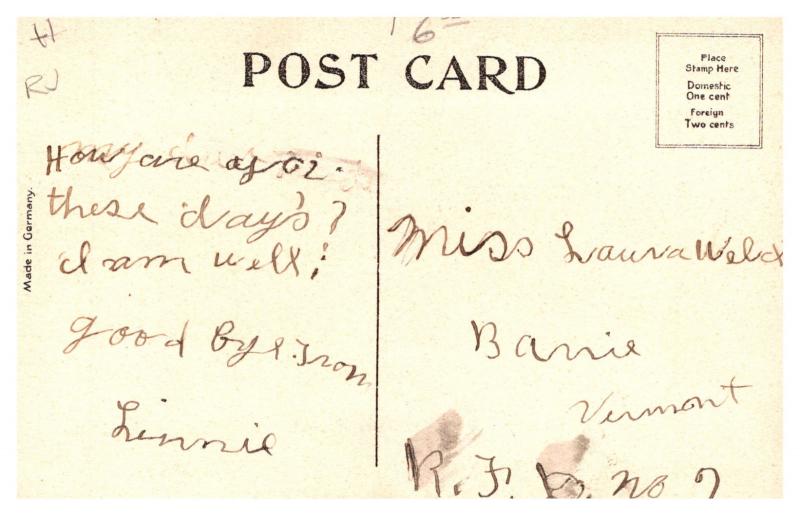 6
POST CARD
Place
Stamp Here
Domestic
One cent
Foreign
Two cents
Made in Germany.
How are
these day's?
I am well;
good bye. From
Linnie
Miss Laura Weld
Barrie
Vermont
R. F. D. No 7